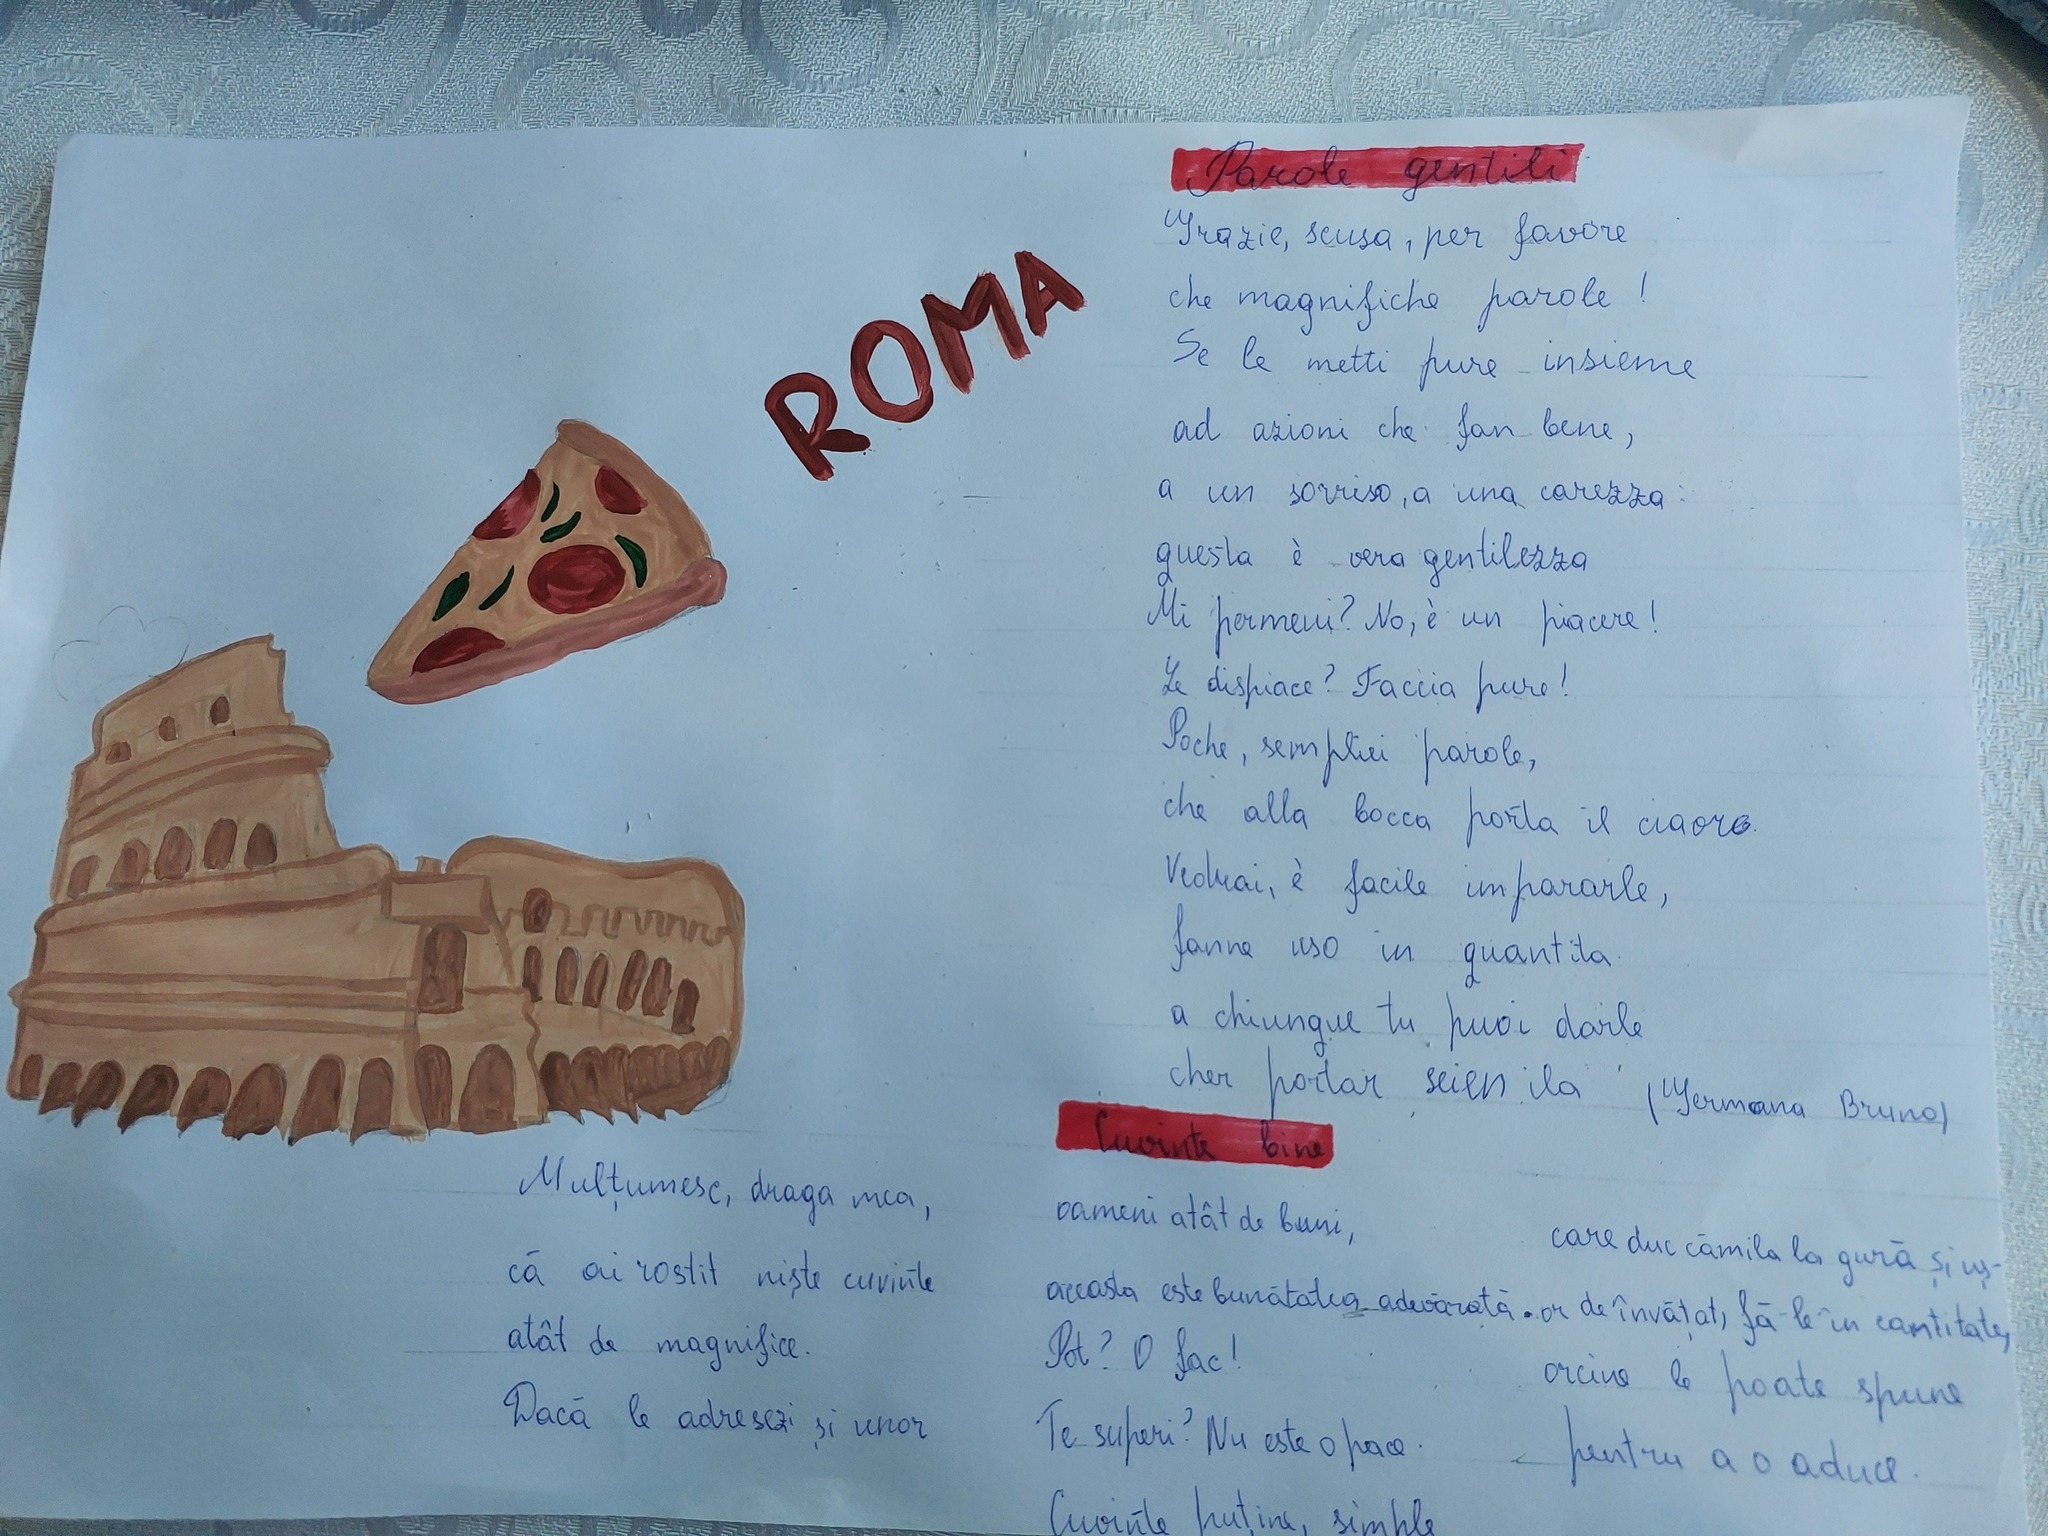 ROMA
Parole gentili
Grazie, scusa, per favore
che magnifiche parole!
Se le metti pure insieme
ad azioni che fan bene,
a un sorriso, a una carezza:
questa è vera gentilezza
Mi permeui? No, è un piacere!
Le dispiace? Faccia pure!
Poche, semplici parole,
che alla bocca porta il ciaore.
Vedrai, è facile impararle,
fanne uso in quantita
a chiunque tu puoi darle
cher portar seien ila (Germana Bruno)
Cuvinte bine
Mulțumesc, draga mea,
că ai rostit niște cuvinte
atât de magnifice.
Dacă le adresezi și unor
oameni atât de buni,
aceasta este bunătatea adevărată.
Pot? O fac!
Te superi? Nu este o pace.
Cuvinte puține, simple
care duc cămila la gură și uș-
or de învățat, fă-le în cantitate,
orcine le poate spune
pentru a o aduce.